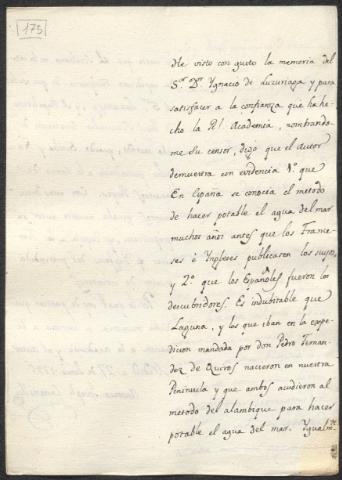 175
He visto con gusto la memoria del
S.r D.n Ygnacio de Luzuriaga y para
satisfacer a la confianza que ha he-
cho la R.l Academia, nombrando-
me su censor, digo que el Autor
demuestra con evidencia 1.o que
En España se conocia el metodo
de hacer potable el agua del mar
muchos años antes que los France-
ses è Yngleses publicasen los suyos,
y 2.o que los Españoles fueron los
descubridores. Es indubitable que
Laguna, y los que iban en la expe-
dicion mandada por don Pedro Fernan-
dez de Quiros nacieron en nuestra
Peninsula y que ambos acudieron al
metodo del alambique para hacer
potable el agua del mar. Ygualm.te